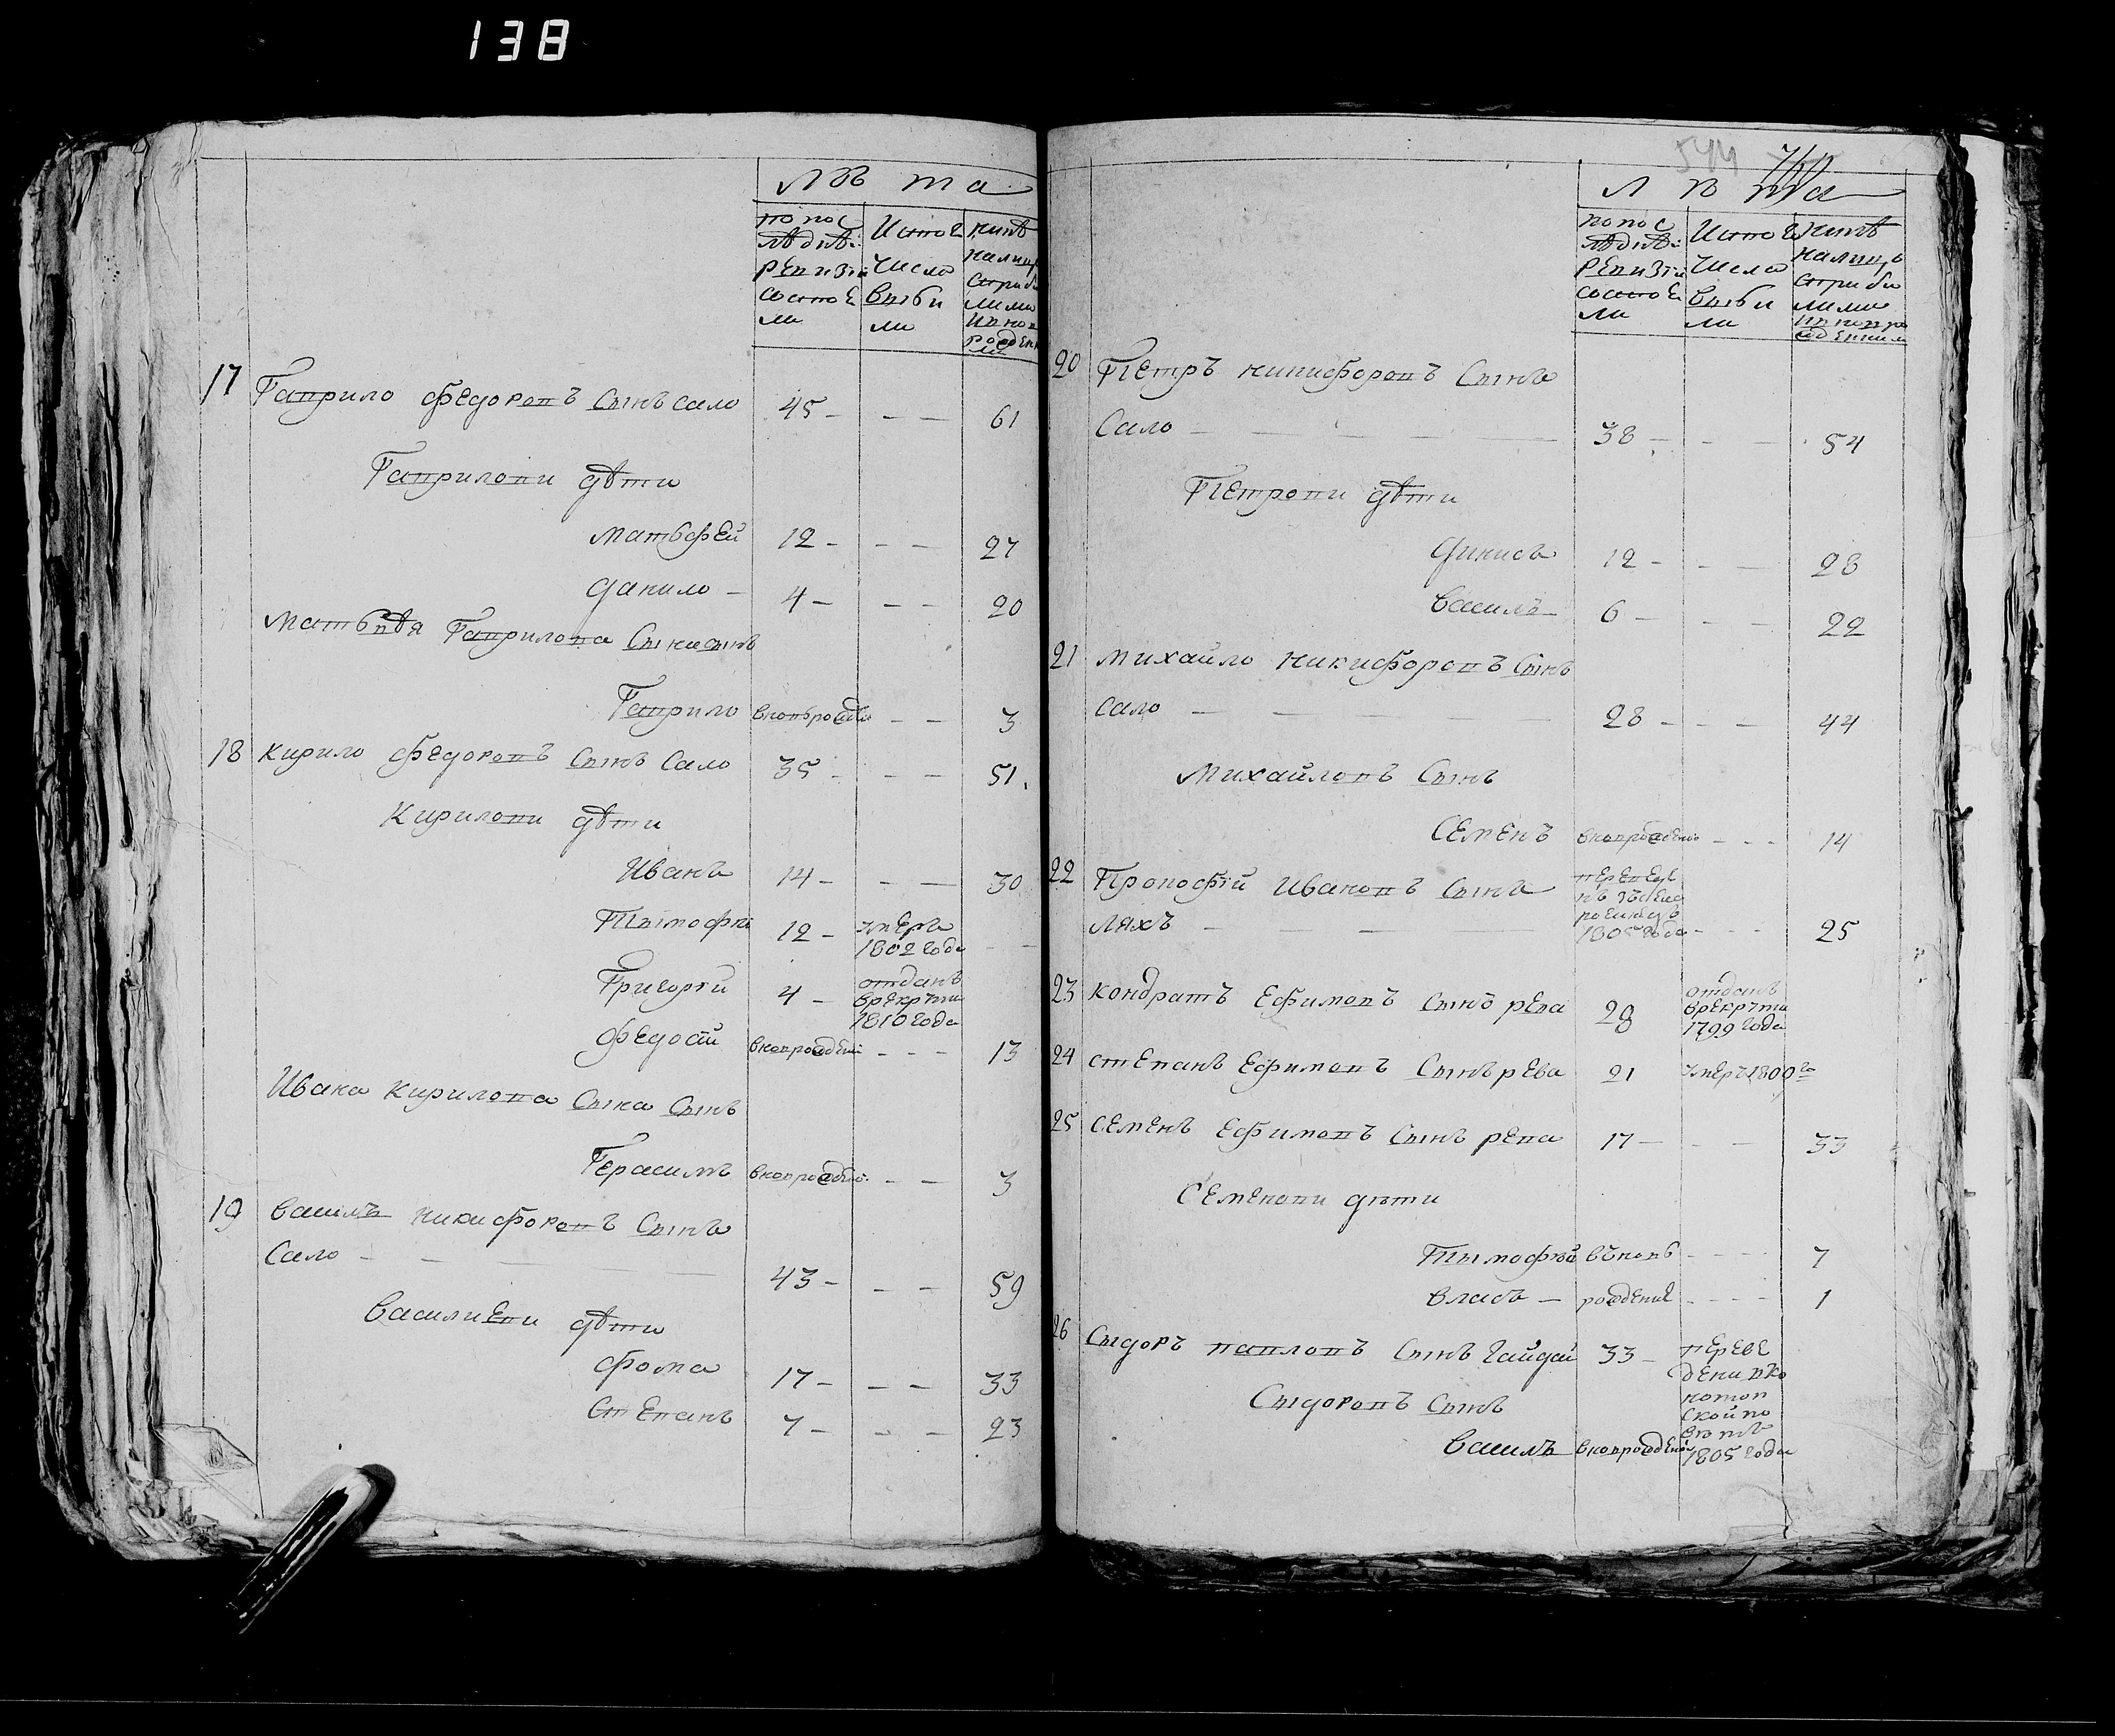 138
Лѣта
по пос
лѣднѣ:
ревизіи
состоя
ли
Истого
числа
выбы
ли
нинѣ
налицо
17 Гаврило Федоровъ сынъ Сало 45 - - - 61
Гавриловы дѣти
Матвфей 12 - - - 27
Данило - 4 - - - 20
Матвѣя Гаврилова сына сынъ
Гаврило - - 3
18 Кирило Федоровъ сынъ Сало 35 - - - 51
Кириловы дѣти
Иванъ 14 - - - 30
Тымофѣй 12 - умеръ 1802 года - -
Григорій 4 - отданъ в рекруты 1810 года
Федосій в новорожденій - - - 13
Ивана Кирилова сына сынъ
Герасимъ - - 3
19 Василь Никифоровъ сынъ
Сало - - - - 43 - - - 59
Василиеви дѣти
Фома 17 - - - 33
Степанъ 7 - - - 23
544
Лѣта
по пос
лѣднѣ:
ревизіи
состоя
ли
Истого
числа
выбы
ли
нинѣ
налицо
20 Петръ Никифоровъ сынъ
Сало - - - - - 38 - - - 54
Петрови дѣти
Динисъ 12 - - - 28
Василь - 6 - - - 22
21 Михайло Никифоровъ сынъ
Сало - - - - 28 - - - 44
Михайловъ сынъ
Семенъ - - - 14
22 Прокофій Ивановъ сынъ
Ляхъ - - - 1805 года - - - 25
23 Кондратъ Ефимовъ сынъ Рева 28 отданъ в рекруты 1799 года
24 Степанъ Ефимовъ сынъ Рева 21 умеръ 1809 го
25 Семенъ Ефимовъ сынъ Рева 17 - - - 33
Семенови дѣти
Тымофѣй въ новѣ - - - - 7
Власъ - рождение - - - - 1
26 Сыдоръ Павловъ сынъ Гайдай 33 - переве
дени вко
нотоп
ской по
вѣтъ
1805 года
Сыдоровъ сынъ
Василь в новорожденій